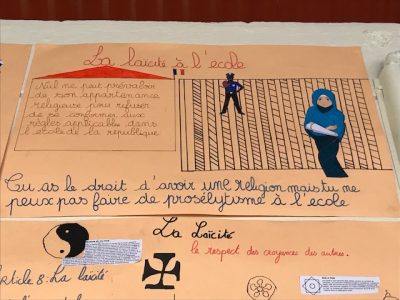 La laïcité à l'école
Nul ne peut prévaloir
de son appartenance
religieuse pour refuser
de se conformer aux
règles applicables dans
l'école de la republique
Tu as le droit d'avoir une religion mais tu ne
peux pas faire de prosélytisme à l'école
La Laïcité
le respect des croyances des autres.
article 8: La laïcité